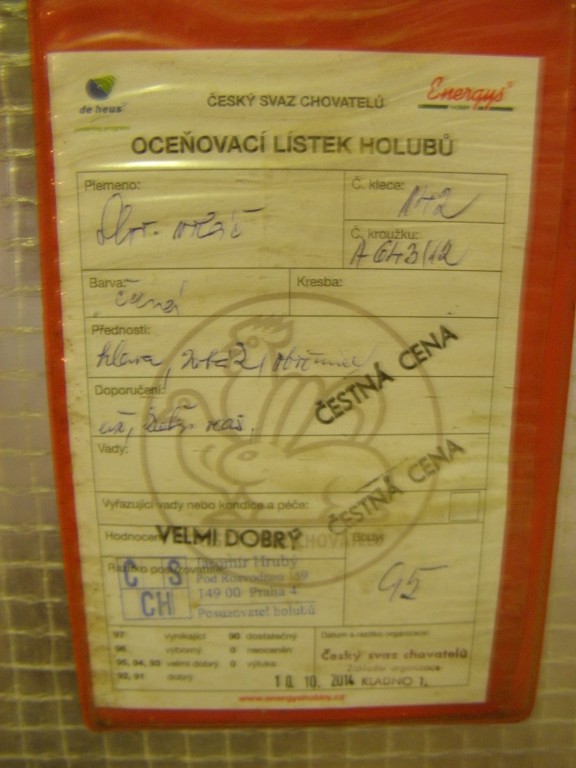 de heus
ČESKÝ SVAZ CHOVATELŮ
Energys
OCEŇOVACÍ LÍSTEK HOLUBŮ
Plemeno:
Č. klece:
Č. kroužku:
A 643/12
Barva: černá
Kresba:
Přednosti:
hlava, zobák, obočnice
Doporučení:
Vady:
ČESTNÁ CENA
ČESTNÁ CENA
Vyřazující vady nebo kondice a péče:
VELMI DOBRÝ
Body:
95
C S
CH
Jaromír Hrubý
Pod Rozvodnou
149 00 Praha 4
Posuzovatel holubů
97 vynikající 90 dostatečný
96 výborný 0 neoceněn
95, 94, 93 velmi dobrý 0 výluka
92, 91 dobrý
Datum a razítko organizace:
Český svaz chovatelů
Základní organizace
10. 10. 2014 KLADNO 1.
www.energyshobby.cz